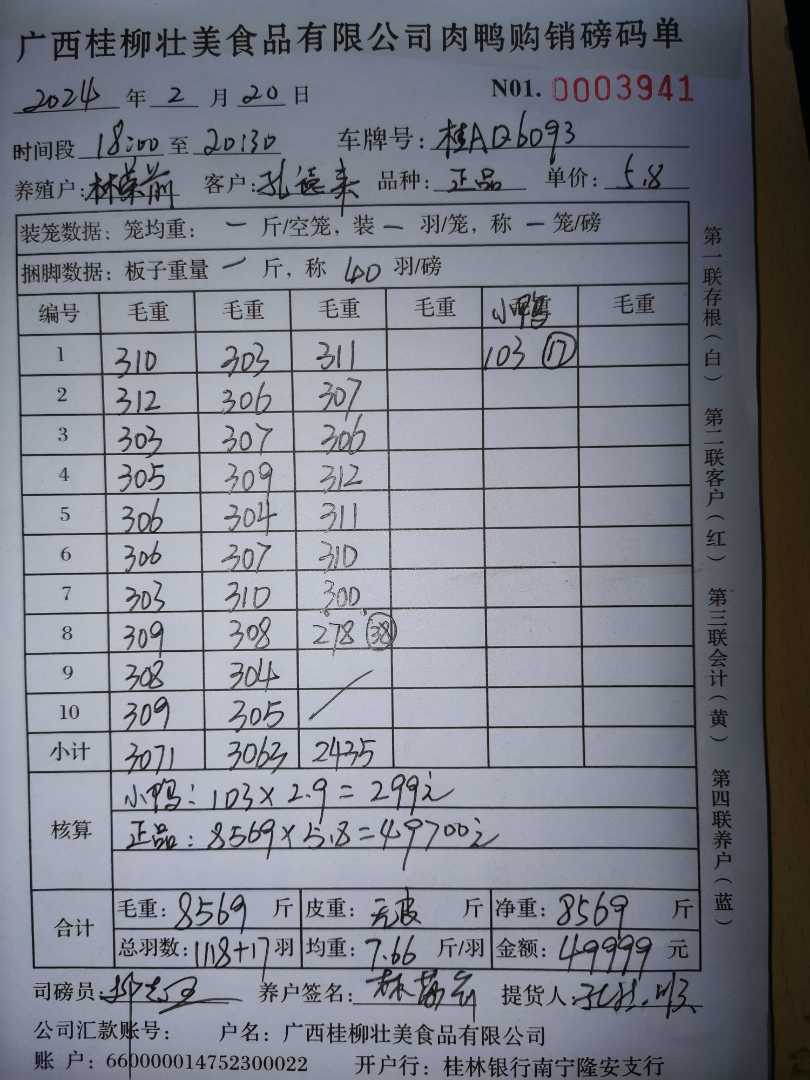 广西桂柳壮美食品有限公司肉鸭购销磅码单
2024 年 2 月 20 日 N01. 0003941
时间段 18:00 至 20:30 车牌号: 桂AD6093
养殖户: 林荣前 客户: 孔德来 品种: 正品 单价: 5.8
装笼数据: 笼均重: 一 斤/空笼, 装 一 羽/笼, 称 一 笼/磅
捆脚数据: 板子重量 一 斤, 称 40 羽/磅
编号 毛重 毛重 毛重 毛重 小鸭 毛重
1 310 303 311 103 ⑰
2 312 306 307
3 303 307 306
4 305 309 312
5 306 304 311
6 306 307 310
7 303 310 300
8 309 308 278 ㊳
9 308 304
10 309 305
小计 3071 3063 2435
核算
小鸭: 103×2.9=299元
正品: 8569×5.8=49700元
合计
毛重: 8569 斤 皮重: 无皮 斤 净重: 8569 斤
总羽数: 1118+17 羽 均重: 7.66 斤/羽 金额: 49999 元
司磅员: 养户签名: 林荣前 提货人:
公司汇款账号: 户名: 广西桂柳壮美食品有限公司
账 户: 660000014752300022 开户行: 桂林银行南宁隆安支行
第一联存根(白) 第二联客户(红) 第三联会计(黄) 第四联养户(蓝)